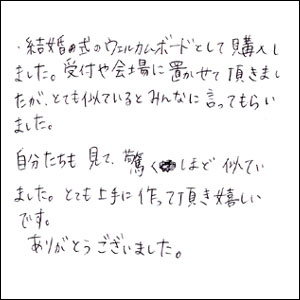 ・結婚式のウェルカムボードとして購入し
ました。受付や会場に置かせて頂きまし
たが、とても似ているとみんなに言ってもらい
ました。
自分たちも見て、驚くほど似てい
ました。とても上手に作って頂き嬉しい
です。
ありがとうございました。